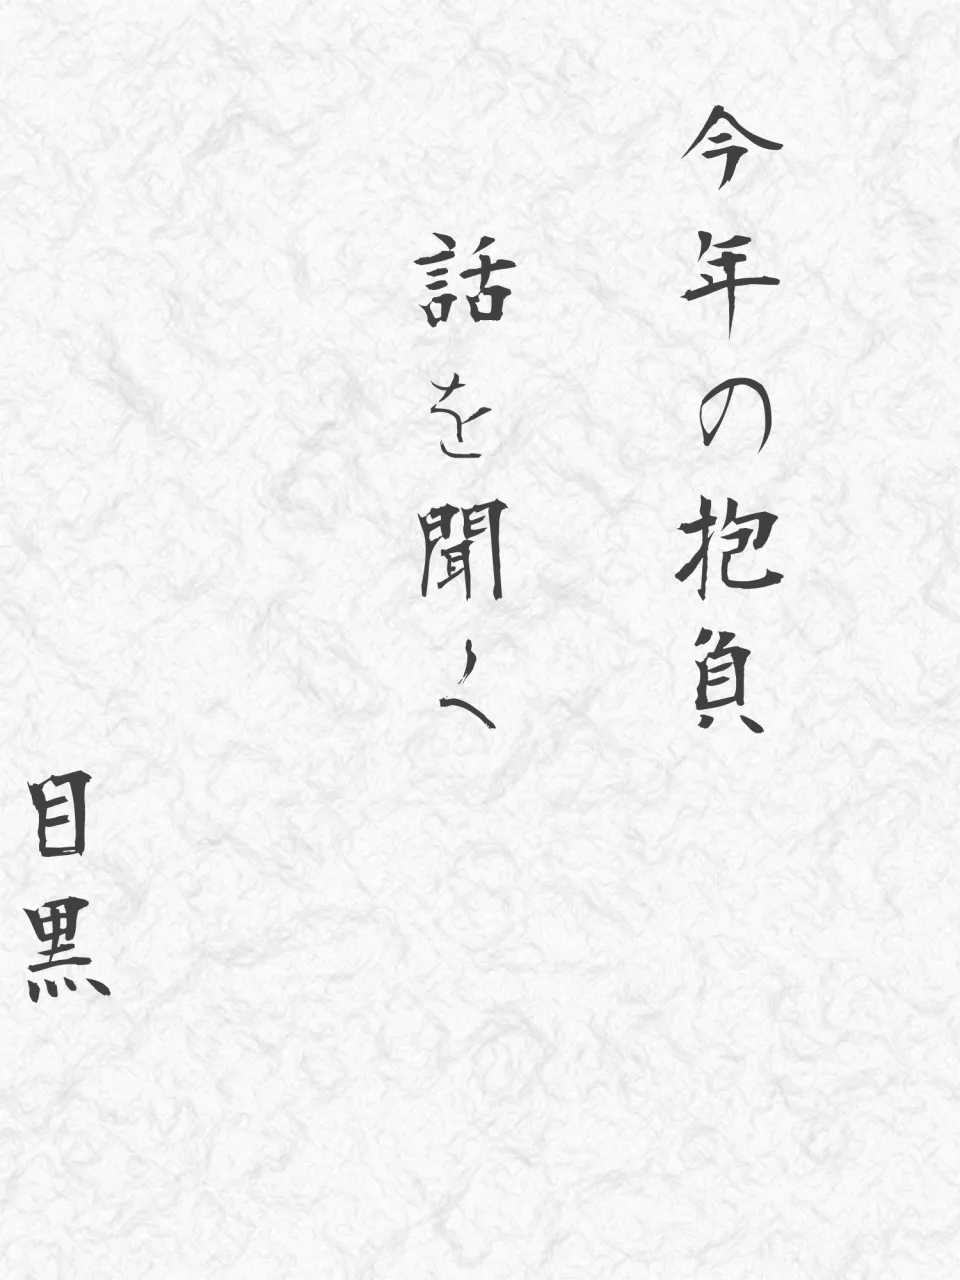 今年の抱負
話を聞く
目黒